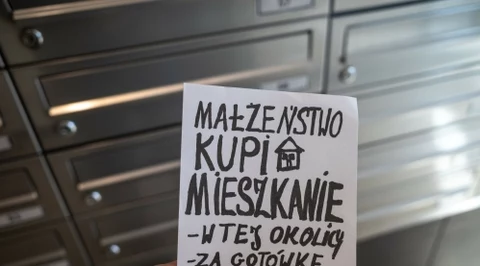 MAŁŻEŃSTWO
KUPI
MIESZKANIE
-W TEJ OKOLICY
-ZA GOTÓWKĘ